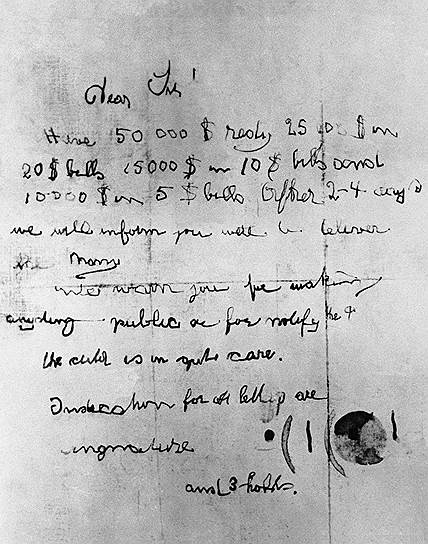 Dear Sir!
Have 50 000 $ redy 25 000 $ in
20 $ bills 15000 $ in 10 $ bills and
10000 $ in 5 $ bills After 2-4 days
we will inform you were to deliver
the Mony
We warn you for making
anyding public or for notify the
the child is in gute care.
Indication for all letters are
singnature
and 3 holds.